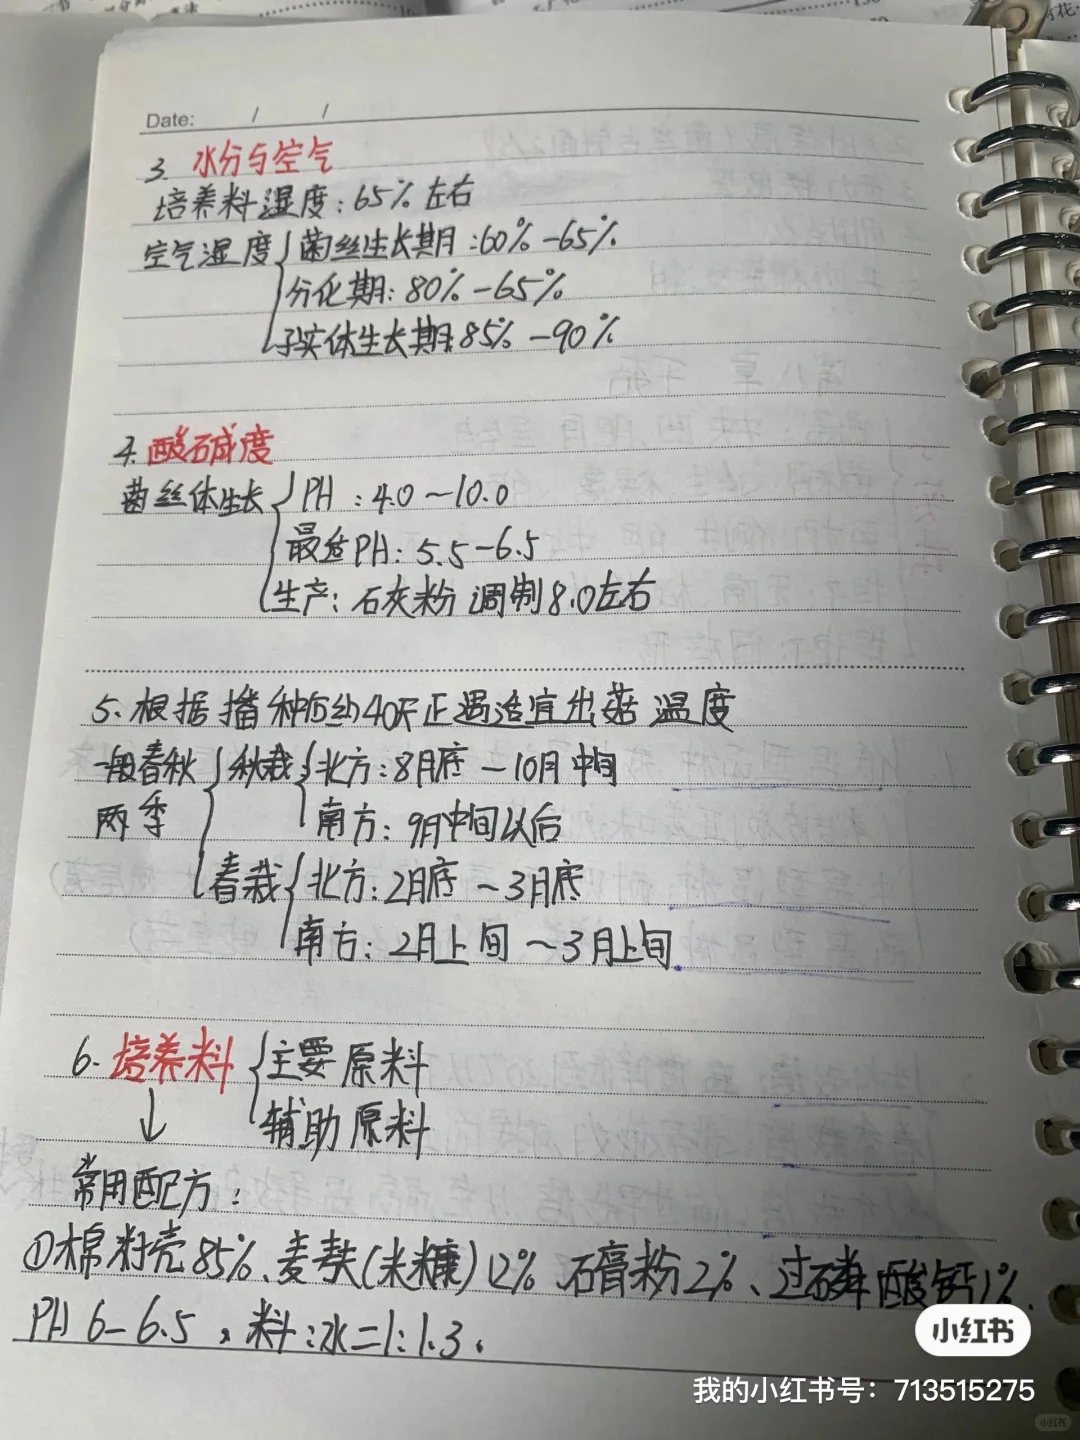 Date: / /
3. 水分与空气
培养料湿度:65% 左右
空气湿度 菌丝生长期:60%-65%
分化期:80%-65%
子实体生长期:85%-90%
4. 酸碱度
菌丝体生长 PH:4.0～10.0
最适PH:5.5-6.5
生产:石灰粉 调制8.0左右
5. 根据播种后约40天正遇适宜出菇温度
一般春秋 秋栽 北方:8月底-10月中旬
两季 南方:9月中旬以后
春栽 北方:2月底～3月底
南方:2月上旬～3月上旬
6. 培养料 主要原料
↓ 辅助原料
常用配方:
①棉籽壳85%、麦麸(米糠)12% 石膏粉2%、过磷酸钙1%、
PH 6-6.5,料:水=1:1.3.
小红书
我的小红书号：713515275
小红书